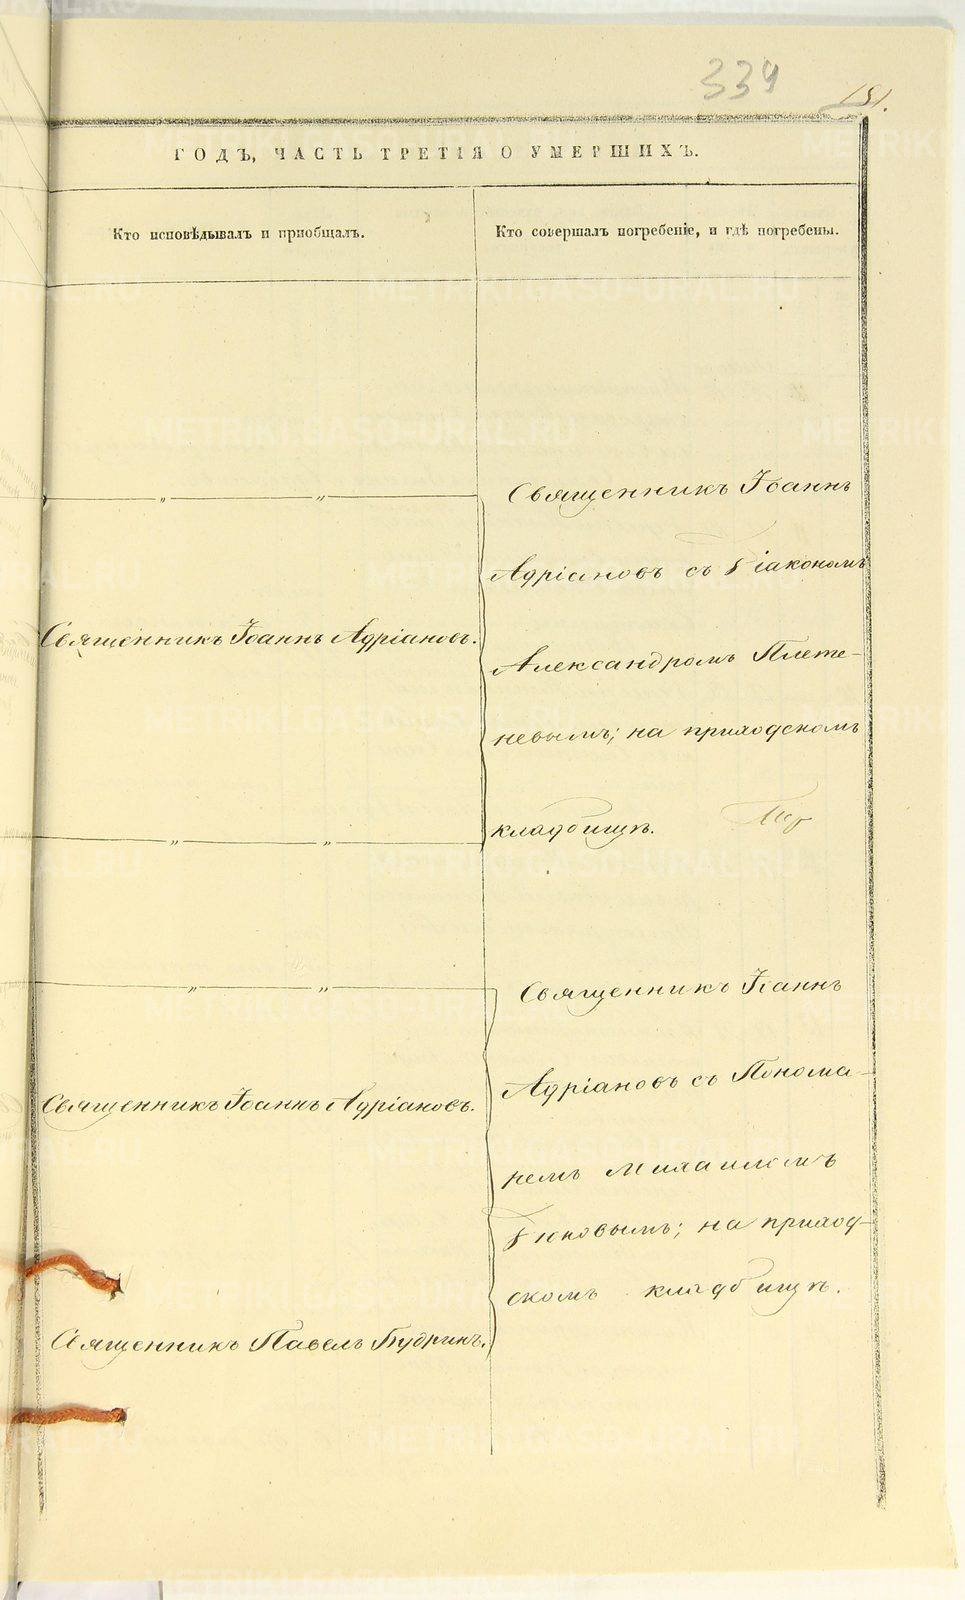 334
181.
ГОДЪ, ЧАСТЬ ТРЕТІЯ О УМЕРШИХЪ.
Кто исповѣдывалъ и пріобщалъ.
Кто совершалъ погребеніе, и гдѣ погребены.
„ „
Священникъ Іоаннъ Адріановъ.
„ „
Священникъ Іоаннъ
Адріановъ съ Діакономъ
Александромъ Плете-
невымъ; на приходскомъ
кладбищѣ.
„ „
Священникъ Іоаннъ Адріановъ.
Священникъ Павелъ Будринъ.
Священникъ Іоаннъ
Адріановъ съ Понома-
ремъ Михаиломъ
на приход-
скомъ кладбищѣ.
METRIKI.GASO-URAL.RU